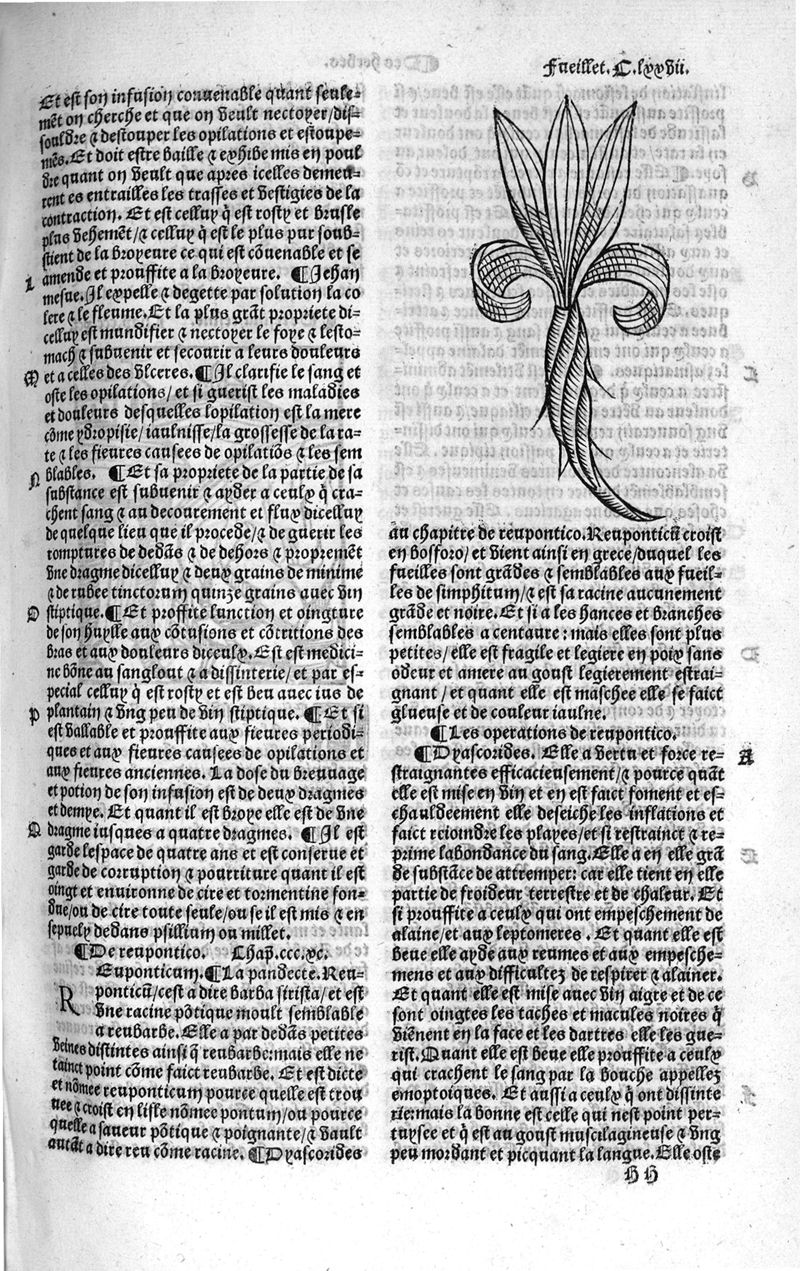 Fueillet. C. lxxvii.
Et est son infusion conuenable quant seule-
mēt on cherche et que on veult nectoyer/dis-
souldre ⁊ destouper les opilations et estoupe-
mēs. Et doit estre baille ⁊ exhibe mis en poul
dre quant on veult que apres icelles demeu-
rent es entrailles les trasses et vestigies de la
contraction. Et est celluy q̄ est rosty et brusle
plus vehemēt/⁊ celluy q̄ est le plus pur soub-
stient de la broyeure ce qui est cōuenable et se
amende et prouffite a la broyeure. ¶Jehan
L
mesue. Jl expelle ⁊ degette par solution la co
lere ⁊ le fleume. Et la plus grāt propriete di-
celluy est mundifier ⁊ nectoyer le foye ⁊ lesto-
mach ⁊ subuenir et secourir a leurs douleurs
M
et a celles des vlceres. ¶Jl clarifie le sang et
oste les opilations/ et si guerist les maladies
et douleurs desquelles lopilation est la mere
cōme ydropisie/iaulnisse/la grossesse de la ra-
te ⁊ les fieures causees de opilatiōs ⁊ les sem
N
blables. ¶Et sa propriete de la partie de sa
substance est subuenir ⁊ ayder a ceulx q̄ cra-
chent sang ⁊ au decourement et flux dicelluy
de quelque lieu que il procede/⁊ de guerir les
romptures de dedās ⁊ de dehors ⁊ propremēt
vne dragme dicelluy ⁊ deux grains de minime
⁊ de rubee tinctorum quinze grains auec vin
O
stiptique. ¶Et proffite lunction et oingture
de son huylle aux cōtusions et cōtritions des
bras et aux douleurs diceulx. Est est medici-
ne bōne au sanglout ⁊ a dissinterie/ et par es-
pecial celluy q̄ est rosty et est beu auec ius de
P
plantain ⁊ vng peu de vin stiptique. ¶Et si
est vallable et prouffite aux fieures periodi-
ques et aux fieures causees de opilations et
aux fieures anciennes. La dose du breuuage
et potion de son infusion est de deux dragmes
et demye. Et quant il est broye elle est de vne
Q
dragme iusques a quatre dragmes. ¶Jl est
garde lespace de quatre ans et est conserue et
garde de corruption ⁊ pourriture quant il est
oingt et enuironne de cire et tormentine fon-
due/ou de cire toute seule/ou se il est mis ⁊ en
sepuely dedans psillium ou millet.
¶De reupontico. Chap̄. ccc. xc.
REuponticum. ¶La pandecte. Reu-
ponticū/cest a dire barba sirista/ et est
vne racine pōtique moult semblable
a reubarbe. Elle a par dedās petites
veines distintes ainsi q̄ reubarbe: mais elle ne
tainct point cōme faict reubarbe. Et est dicte
et nōmee reuponticum pource quelle est trou
uee ⁊ croist en lisle nōmee pontum/ou pource
quelle a saueur pōtique ⁊ poignante/⁊ vault
autāt a dire reu cōme racine. ¶Dyascorides
au chapitre de reupontico. Reuponticū croist
en bosforo/ et vient ainsi en grece/duquel les
fueilles sont grādes ⁊ semblables aux fueil-
les de simphitum/⁊ est sa racine aucunement
grāde et noire. Et si a les hances et branches
semblables a centaure: mais elles sont plus
petites/ elle est fragile et legiere en poix sans
odeur et amere au goust legierement estrai-
gnant/ et quant elle est maschee elle se faict
glueuse et de couleur iaulne.
¶Les operations de reupontico.
¶Dyascorides. Elle a vertu et force re-
A
straignantes efficacieusement/⁊ pource quāt
elle est mise en vin et en est faict foment et es-
chauldeement elle deseiche les inflations et
faict reioindre les playes/et si restrainct ⁊ re-
prime labondance du sang. Elle a en elle grā
de substāce de attremper: car elle tient en elle
partie de froideur terrestre et de chaleur. Et
si prouffite a ceulx qui ont empeschement de
alaine/et aux leptomeres. Et quant elle est
beue elle ayde aux reumes et aux empesche-
mens et aux difficultez de respirer ⁊ alainer.
Et quant elle est mise auec vin aigre et de ce
sont oingtes les taches et macules noires q̄
viēnent en la face et les dartres elle les gue-
rist. Quant elle est beue elle prouffite a ceulx
qui crachent le sang par la bouche appellez
emoptoiques. Et aussi a ceulx q̄ ont dissinte
rie: mais la bonne est celle qui nest point per-
tuysee et q̄ est au goust muscilagineuse ⁊ vng
peu mordant et picquant la langue. Elle oste
HH